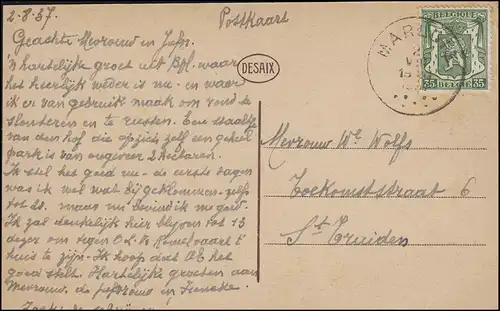 2-8-37.
Postkaart
Geachte Mevrouw en Jufr.
'n hartelijke groet uit Bpl. waar
het heerlijk weder is nu - en waar
ik er van gebruik maak om rond te
slenteren en te rusten. Een staaltje
van den hof die op zich zelf een geheel
park is van ongeveer 2 Hectaren.
Ik stel het goed nu - de eerste dagen
was ik wel wat bij geklommen - zelfs
tot 20. maar nu bevind ik me goed.
Ik zal denkelijk hier blijven tot 13
dezer om tegen O.L.V. Hemelvaart t'
huis te zijn. Ik hoop dat
goed stelt. Hartelijke groeten aan
Mevrouw. de en
DESAIX
MAR
BELGIQUE
35 BELGIE 35
Mevrouw We Wolfs
Toekomststraat 6
St Truiden